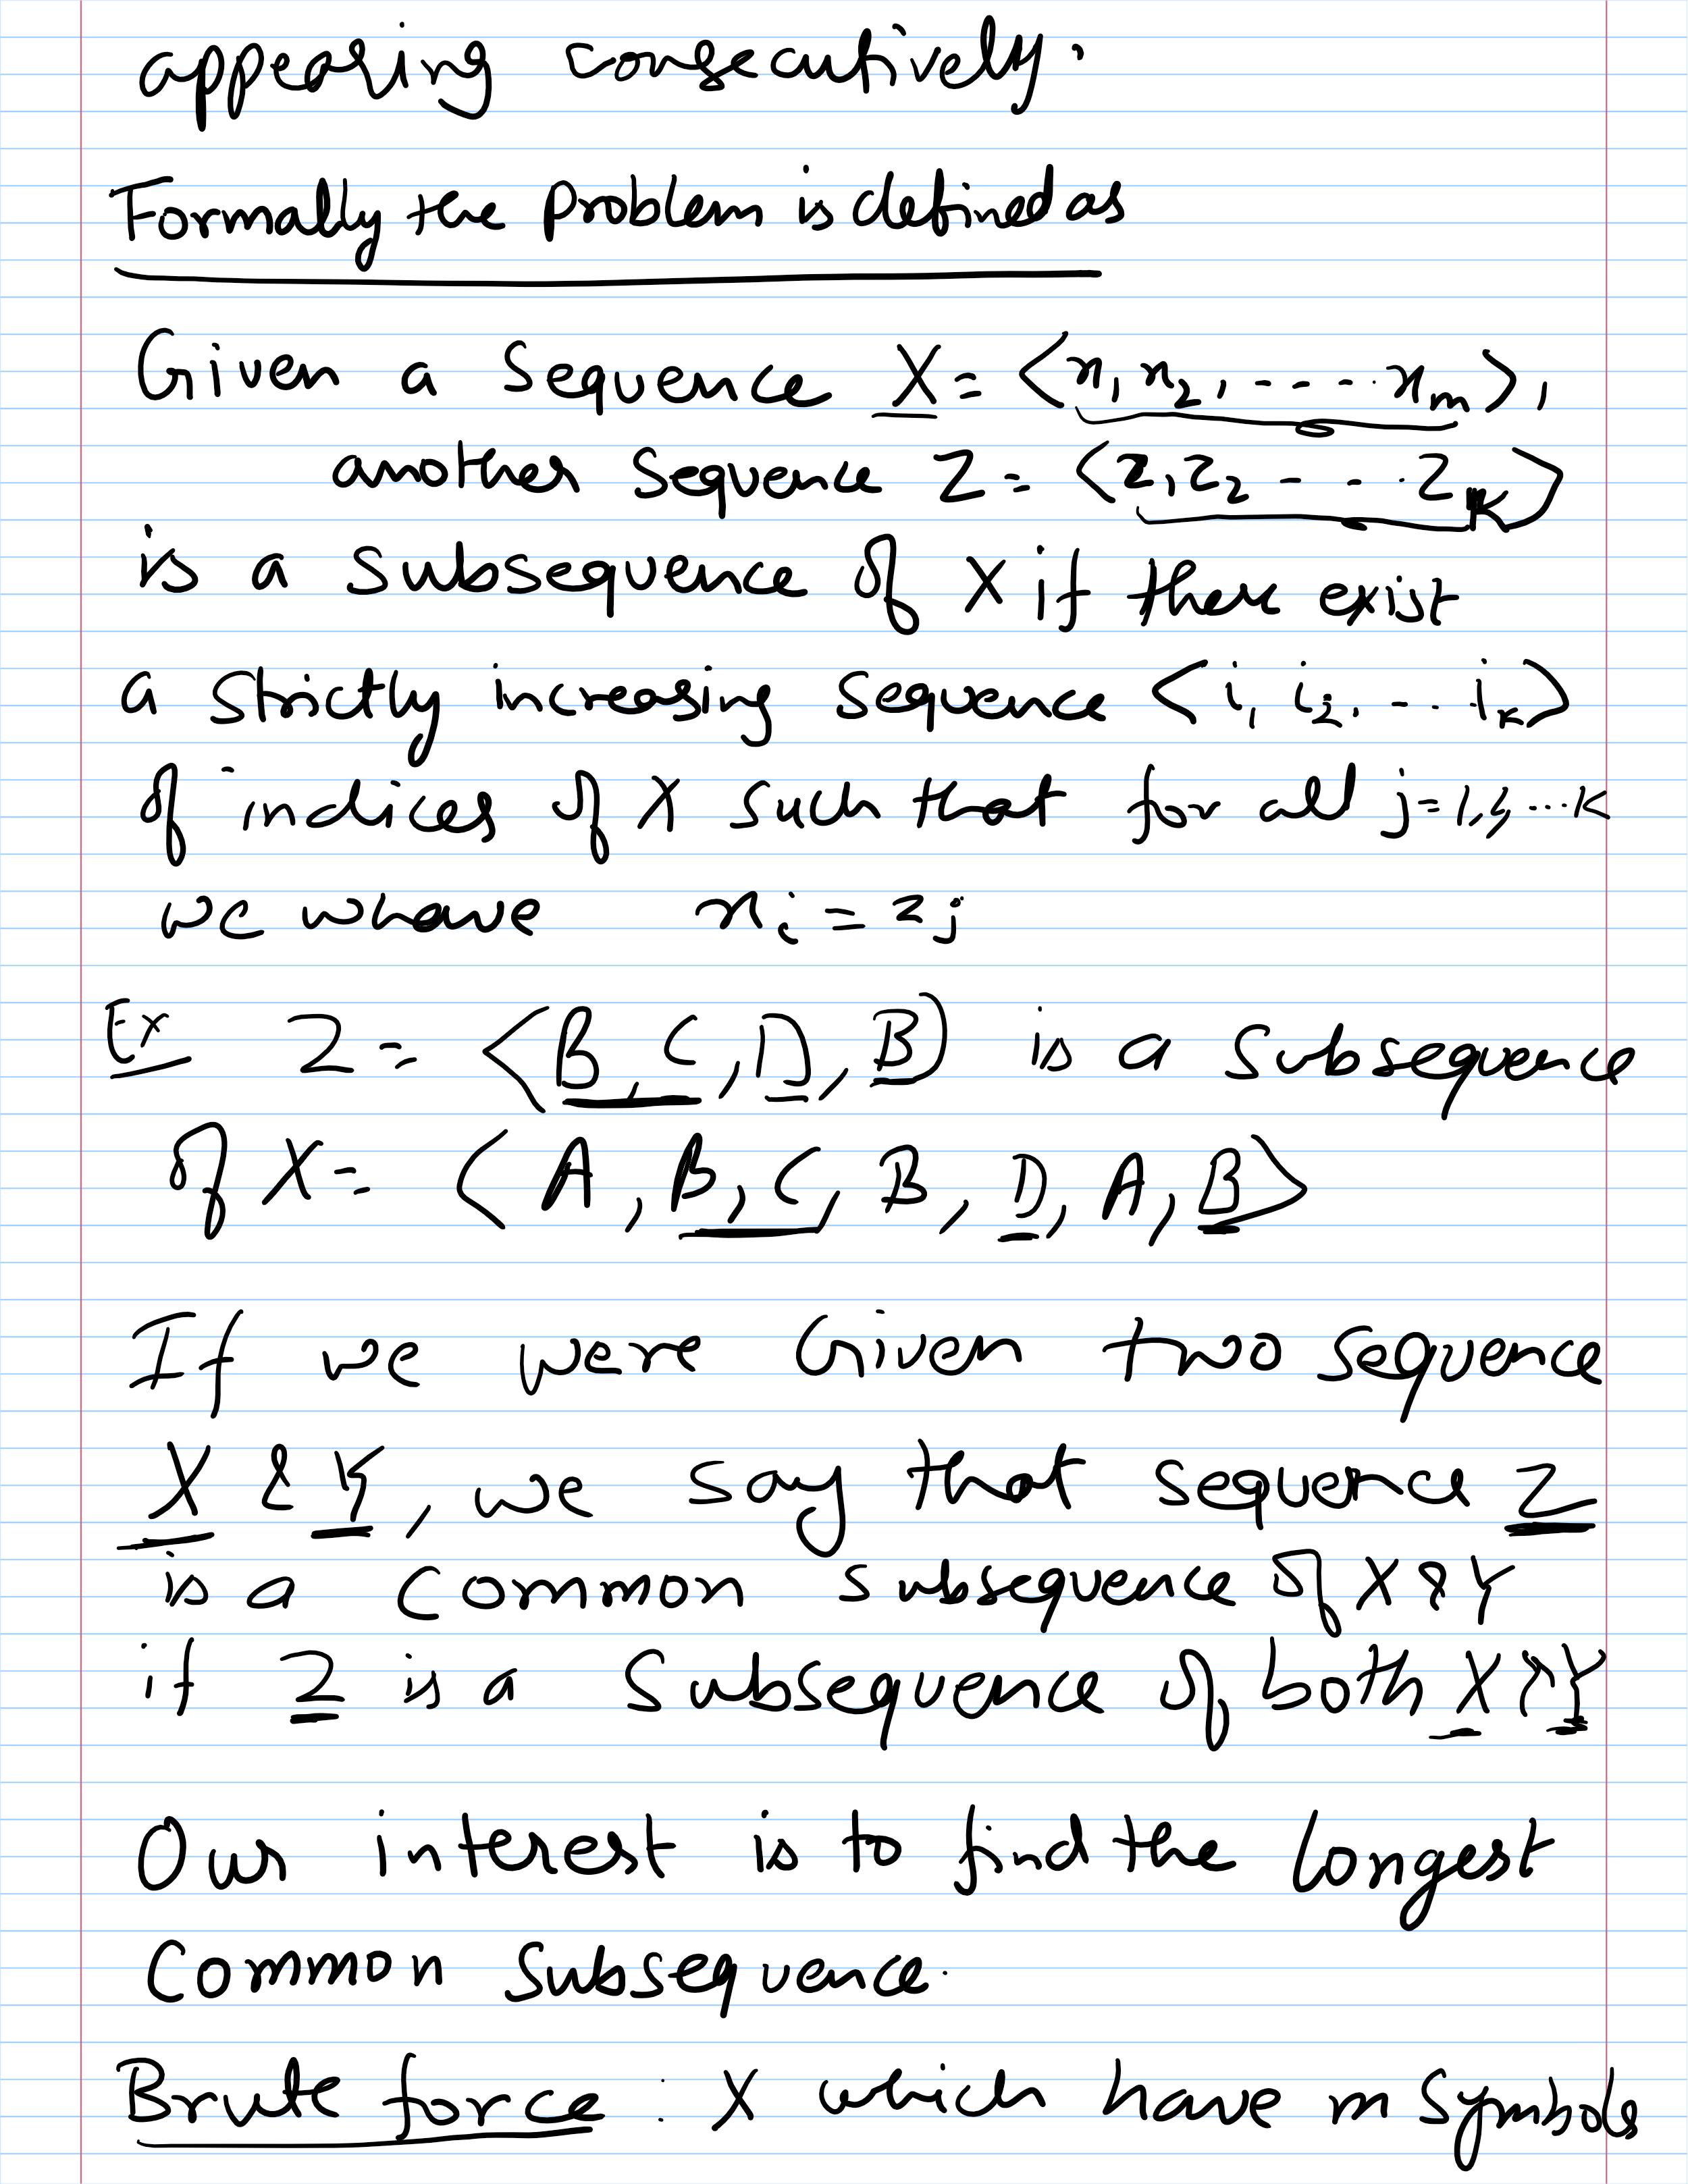 appearing consecutively.
Formally the problem is defined as
Given a sequence X = <x1 x2, ---- xm>,
another sequence Z = <z1 z2 --- zk>
is a subsequence of X if there exist
a strictly increasing sequence <i1 i2, --- ik>
of indices of X such that for all j=1,2,...k
we whave xi = zj
Ex Z = <B, C, D, B> is a subsequence
of X = <A, B, C, B, D, A, B>
If we were Given two sequence
X & Y, we say that sequence Z
is a common subsequence of X & Y
if Z is a subsequence of both X & Y
Our interest is to find the longest
common subsequence.
Brute force : X which have m symbols